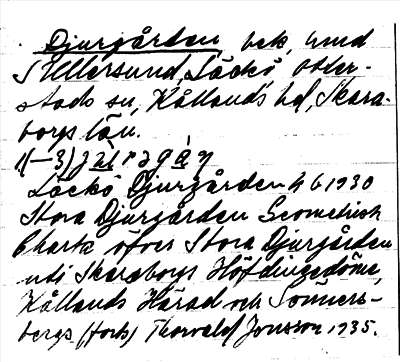 Djurgården, bek, hmd
S Ullersund, Läckö, Otter-
stads sn, Kållands hd, Skara-
borgs län.
Läckö Djurgården h b 1930
Stora Djurgården Geometrisk
Charta öfver Stora Djurgården
uti Skaraborgs Höfdingedöme,
Kållands Härad och Sonners-
bergs (forts) Thorvald Jonsson 1935.